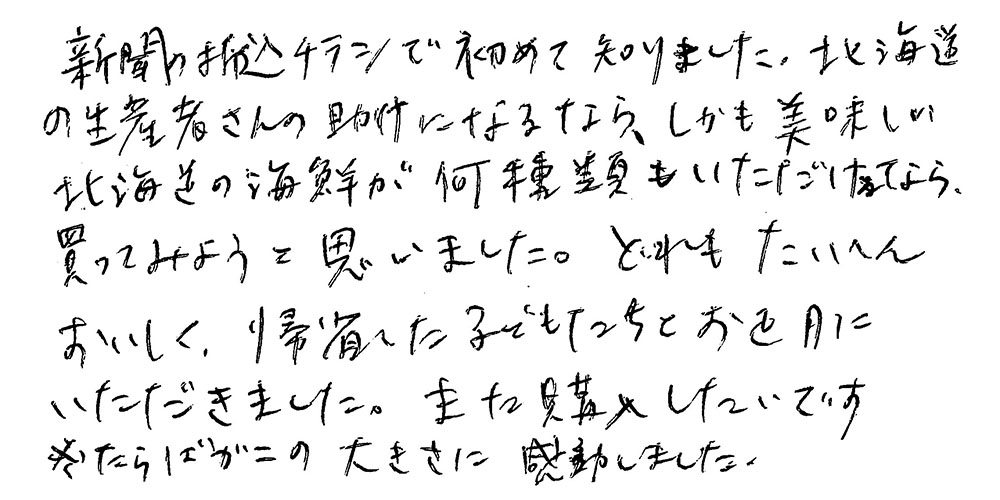 新聞の折込チラシで初めて知りました。北海道
の生産者さんの助けになるなら、しかも美味しい
北海道の海鮮が何種類もいただけるなら、
買ってみようと思いました。どれもたいへん
おいしく、帰省した子どもたちとお正月に
いただきました。また購入したいです
たらばがにの大きさに感動しました。